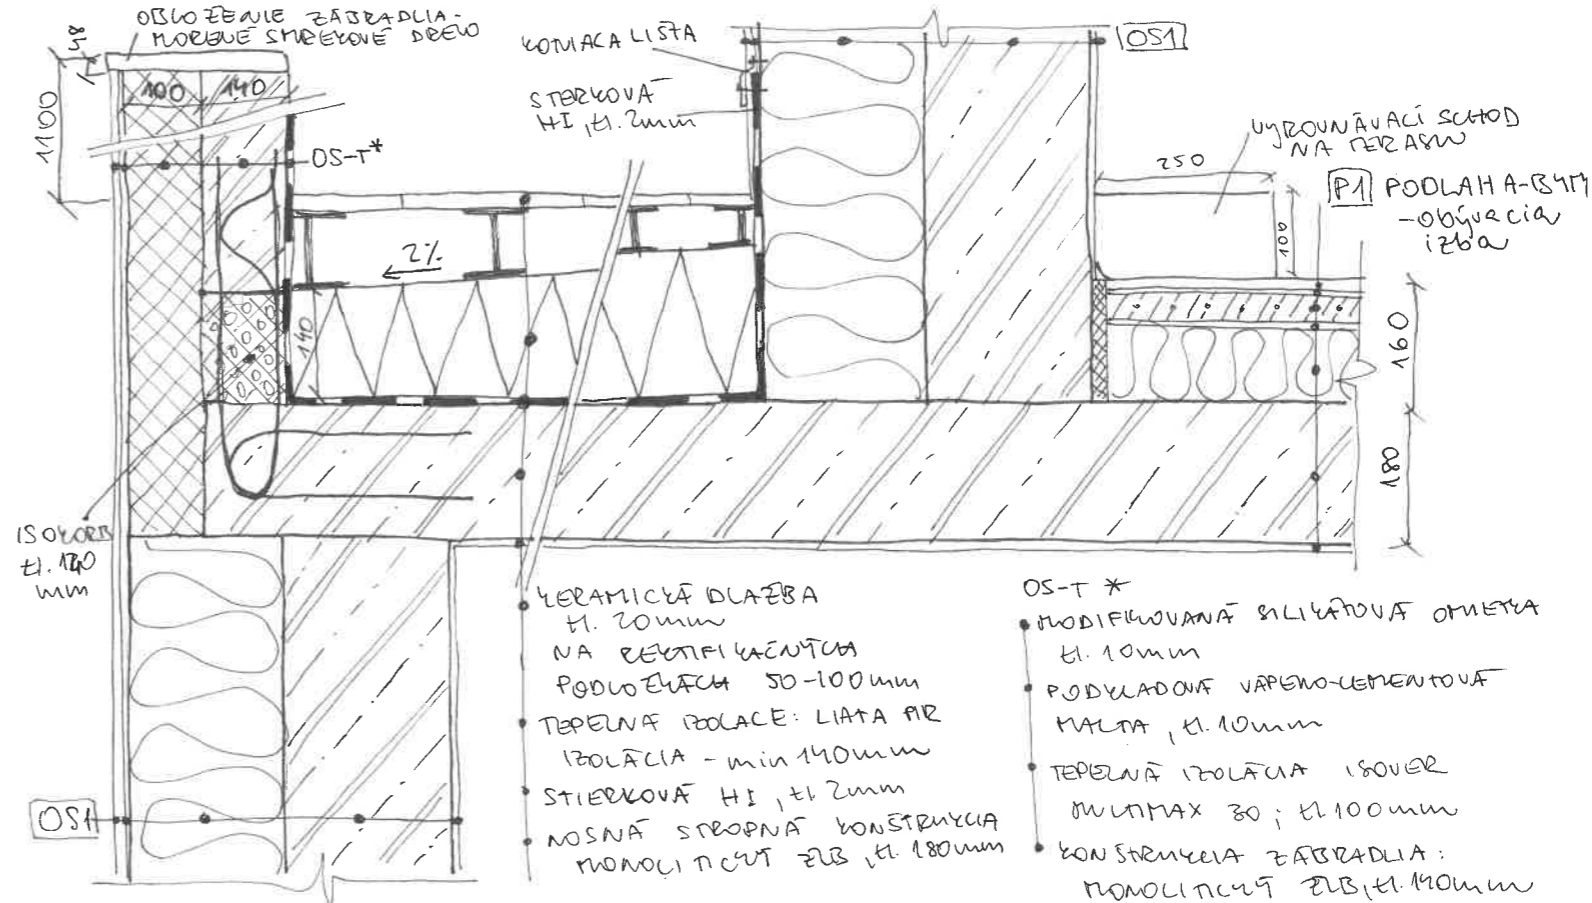 OBLOŽENIE ZÁBRADLIA -
MORENÉ SMREKOVÉ DREVO
48
1100
100
140
OS-T*
KONIACA LIŠTA
STERKOVÁ
HI, tl. 2mm
OS1
VYROVNÁVACÍ SCHOD
NA TERASU
250
100
P1 PODLAHA-BYTY
-obývacia
izba
2%
140
160
180
ISOKORB
tl. 140
mm
OS1
KERAMICKÁ DLAŽBA
tl. 20mm
NA REKTIFIKAČNÝCH
PODLOŽKÁCH 50-100mm
TEPELNÁ IZOLACE: LIATA PIR
IZOLÁCIA - min 140mm
STIERKOVÁ HI, tl 2mm
NOSNÁ STROPNÁ KONŠTRUKCIA
MONOLITICKÝ ŽLB, tl. 180mm
OS-T *
MODIFIKOVANÁ SILIKÁTOVÁ OMIETKA
tl. 10mm
PODKLADOVÁ VÁPENO-CEMENTOVÁ
MALTA, tl. 10mm
TEPELNÁ IZOLÁCIA ISOVER
MULTIMAX 30; tl 100mm
KONŠTRUKCIA ZÁBRADLIA:
MONOLITICKÝ ŽLB, tl. 140mm